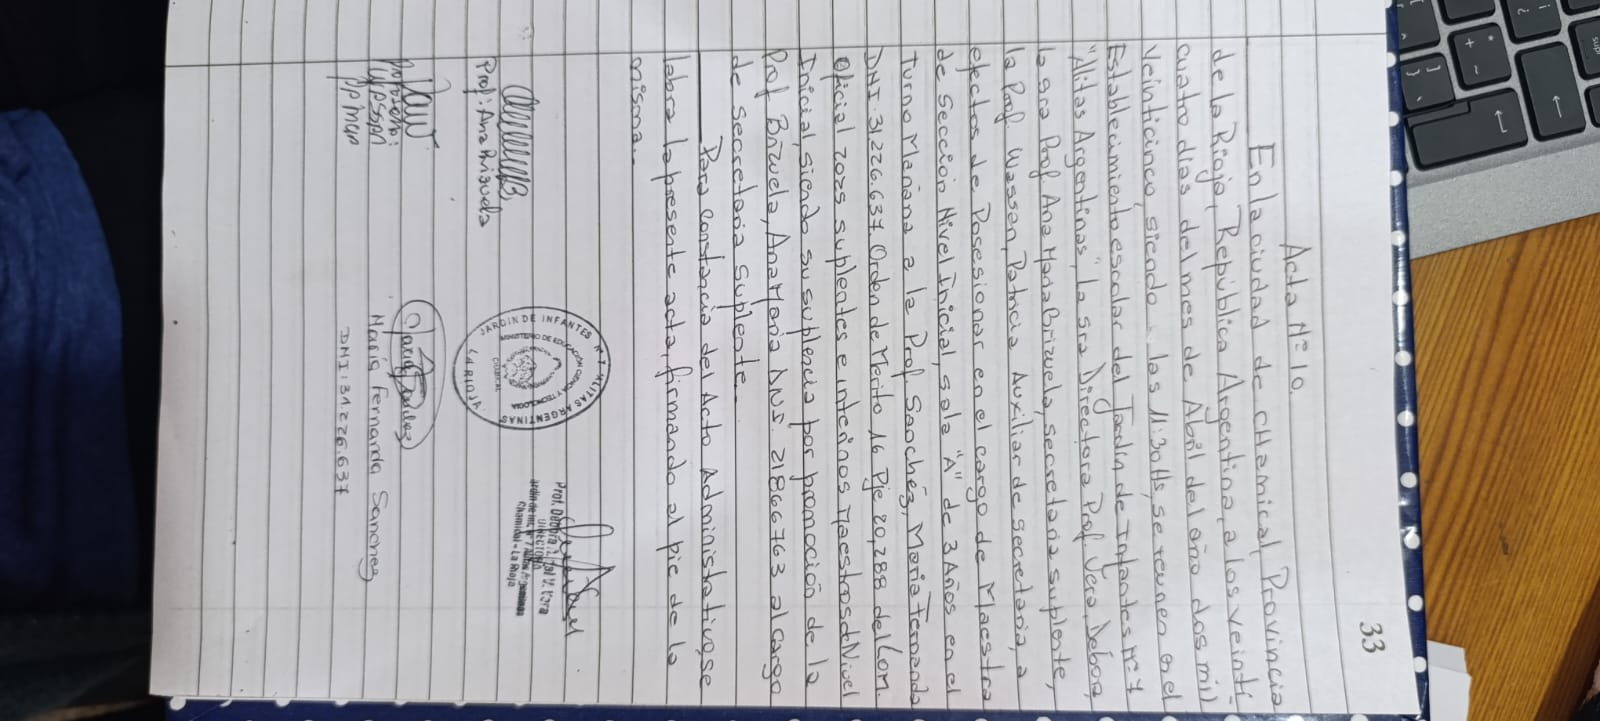 33
Acta N° 10.
En la ciudad de CHamical, Provincia
de la Rioja, República Argentina, a los veinti
cuatro días del mes de Abril del año dos mil
veinticinco, siendo las 11:30 Hs, se reunen en el
Establecimiento escolar del Jardín de Infantes N° 7
"Alitas Argentinas", la sra Directora Prof. Vera, Débora,
la sra Prof Ana María Brizuela, secretaria suplente,
la Prof. Wassan, Patricia Auxiliar de secretaria, a
efectos de Posesionar en el cargo de Maestra
de Sección Nivel Inicial, sala "A" de 3 Años en el
turno Mañana a la Prof. Sanchez, María Fernanda
DNI: 31.226.637. Orden de Merito 16 Pje 20,288 del Com.
Oficial 2025 suplentes e interinos Maestros de Nivel
Inicial, siendo su suplencia por promoción de la
Prof Brizuela, Ana María DNI. 21866763 al cargo
de Secretaria suplente.
Para constancia del Acto Administrativo, se
labra la presente acta, firmando al pie de la
misma.
Prof: Ana Brizuela
JARDIN DE INFANTES N° 7 ALITAS ARGENTINAS
MINISTERIO DE EDUCACIÓN CIENCIA Y TECNOLOGIA
CHAMICAL
LA RIOJA
Prof. Débora V. Vera
DIRECTORA
Jardín de Inf. N° 7 Alitas Argentinas
Chamical - La Rioja
María Fernanda Sanchez
DNI: 31.226.637